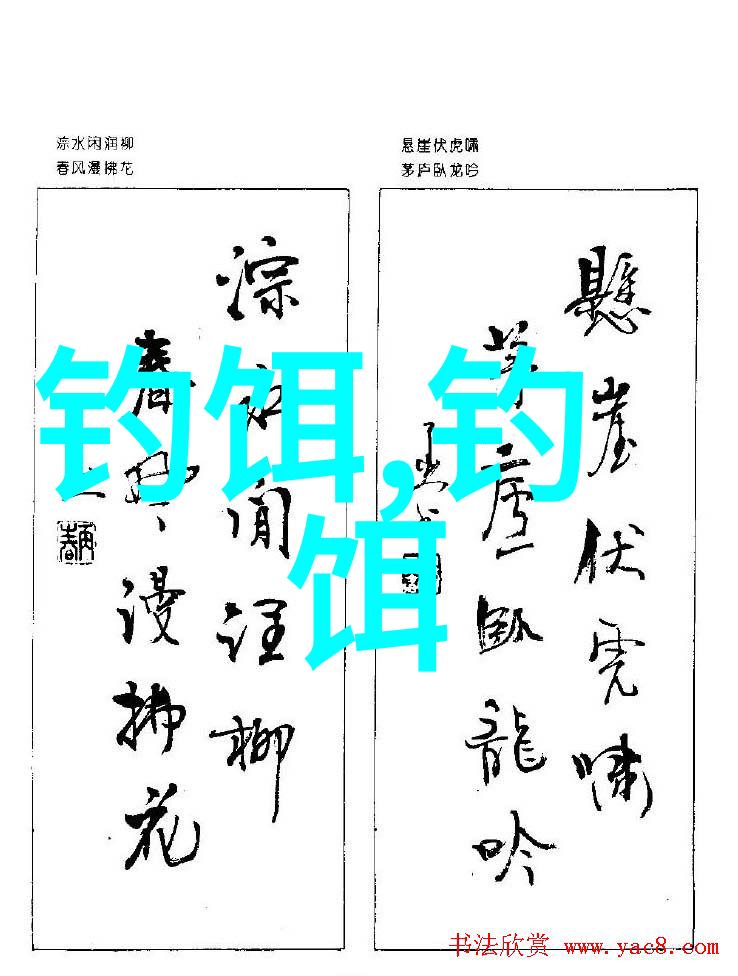 淙水闲润柳
春风漫拂花
悬崖伏虎啸
茅庐卧龙吟
钓饵,钓
饵
懸崖伏虎嘯
茅廬臥龍吟
淙水閒潤柳
春風漫拂花
书法欣赏 www.yac8.com